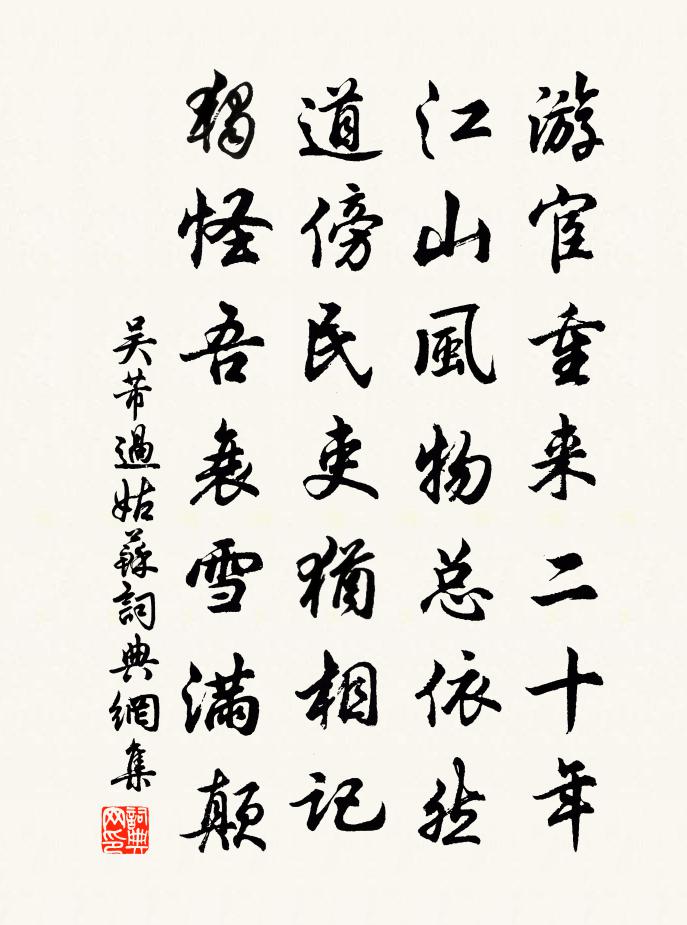 游宦重来二十年
江山風物总依然
道傍民吏猶相记
獨怪吾衰雪满颠
吴芾過姑蘇詞典網集
詞典
网印